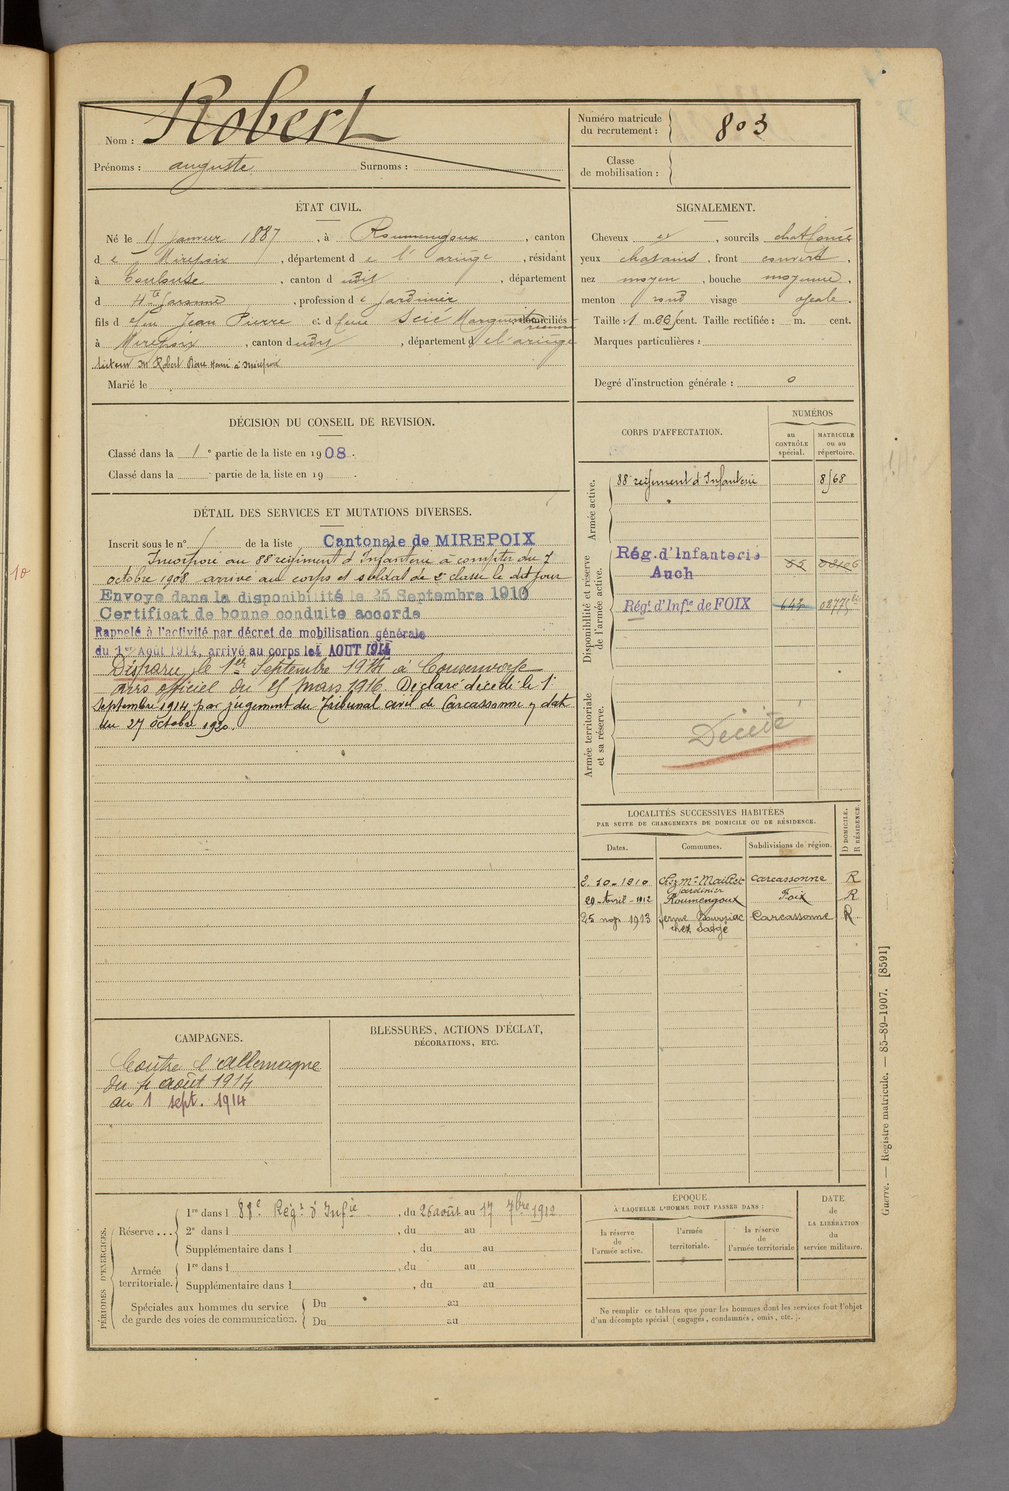 Nom : Robert
Prénoms : auguste Surnoms :
Numéro matricule
du recrutement : 803
Classe
de mobilisation :
ÉTAT CIVIL.
Né le janvier 1887, à Roumengoux, canton
de Mirepoix, département de l'ariège, résidant
à Toulouse, canton dudit, département
d Hte Garonne, profession de Jardinier
fils de feu Jean Pierre et de feue domiciliés
à Mirepoix, canton dudit, département de l'ariège
tuteur Mr Robert à Mirepoix
Marié le
SIGNALEMENT.
Cheveux et, sourcils chat foncé
yeux chatains, front couvert,
nez moyen, bouche moyenne,
menton rond visage ovale.
Taille : 1 m. 66 cent. Taille rectifiée : m. cent.
Marques particulières :
Degré d'instruction générale : 0
DÉCISION DU CONSEIL DE REVISION.
Classé dans la 1e partie de la liste en 1908.
Classé dans la partie de la liste en 19 .
DÉTAIL DES SERVICES ET MUTATIONS DIVERSES.
Inscrit sous le n° de la liste Cantonale de MIREPOIX
Incorporé au 88e régiment d'Infanterie à compter du 7
octobre 1908 arrivé au corps et soldat de 2e classe le dit jour
Envoyé dans la disponibilité le 25 Septembre 1910
Certificat de bonne conduite accordé
Rappelé à l'activité par décret de mobilisation générale
du 1er Août 1914, arrivé au corps le 4 AOUT 1914
Disparu le 1er Septembre 1914 à Consenvoye
avis officiel du mars 1916. Déclaré décédé le 1
septembre 1914 par jugement du Tribunal civil de Carcassonne en date
du 27 octobre 1920.
CORPS D'AFFECTATION.
NUMÉROS
au
CONTRÔLE
spécial.
MATRICULE
ou au
répertoire.
Armée active.
88e régiment d'Infanterie
Disponibilité et réserve
de l'armée active.
Rég. d'Infanterie
Auch
Régt d'Infie de FOIX
Armée territoriale
et sa réserve.
Décédé
LOCALITÉS SUCCESSIVES HABITÉES
PAR SUITE DE CHANGEMENTS DE DOMICILE OU DE RÉSIDENCE.
Dates. Communes. Subdivisions de région. D DOMICILE. R RÉSIDENCE.
2-10-1910 chez Mr Maillet Carcassonne R
jardinier
20-Avril-1912 Roumengoux Foix R
25 nov 1913 ferme Carcassonne R
chez
CAMPAGNES.
Contre l'allemagne
du 4 août 1914
au 1 sept. 1914
BLESSURES, ACTIONS D'ÉCLAT,
DÉCORATIONS, ETC.
PÉRIODES D'EXERCICES.
Réserve...
1re dans l 88e Régt d'Infie, du 26 août au 17 7bre 1912
2e dans l , du au
Supplémentaire dans l , du au
Armée
territoriale.
1re dans l , du au
Supplémentaire dans l , du au
Spéciales aux hommes du service
de garde des voies de communication.
Du au
Du au
ÉPOQUE
À LAQUELLE L'HOMME DOIT PASSER DANS :
la réserve
de
l'armée active.
l'armée
territoriale.
la réserve
de
l'armée territoriale
DATE
de
LA LIBÉRATION
du
service militaire.
Ne remplir ce tableau que pour les hommes dont les services font l'objet
d'un décompte spécial (engagés, condamnés, omis, etc.).
Guerre. — Registre matricule. — 85-89-1907. [8591]
10